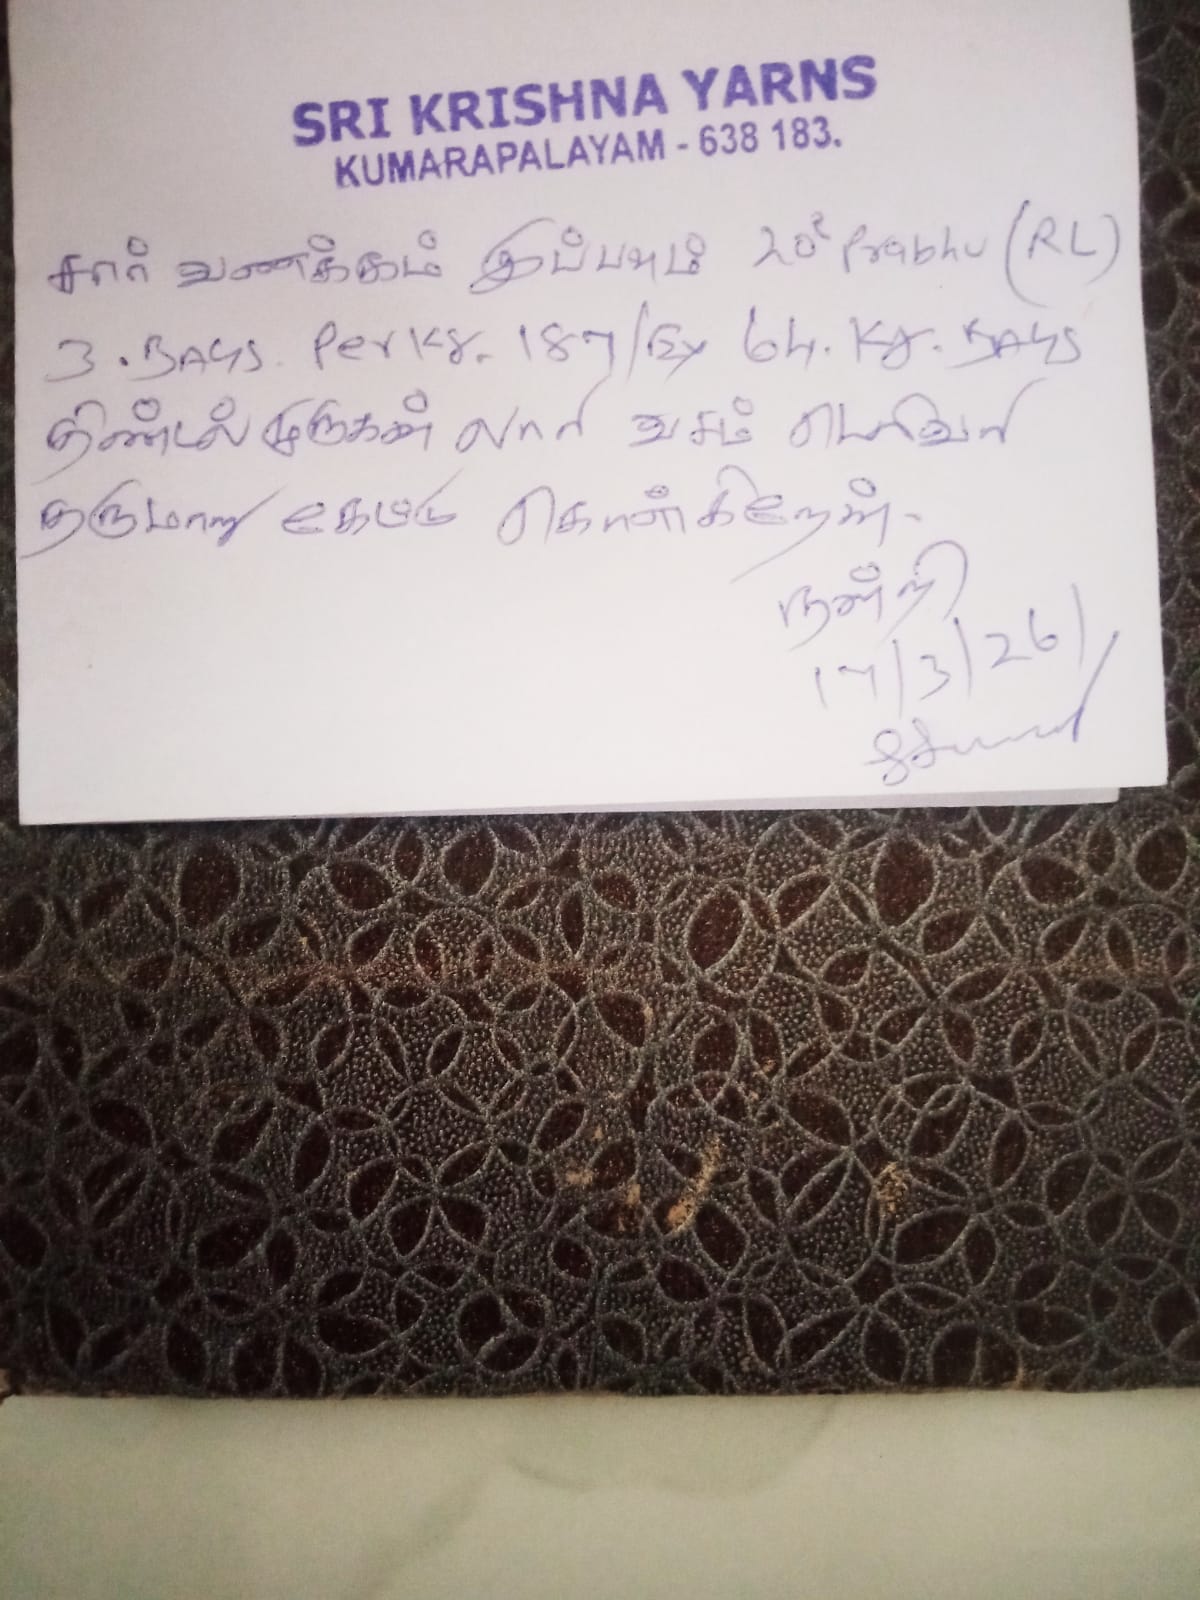 SRI KRISHNA YARNS
KUMARAPALAYAM - 638 183.
சார் வணக்கம் இப்பவும் 20s Prabhu (RL)
3. BAgs. Per Kg. 187/Ex 64. Kg. BAgs
திண்டல் முருகன் லாரி வசம் டெலிவரி
தருமாறு கேட்டு கொள்கிறேன்.
நன்றி
17/3/26